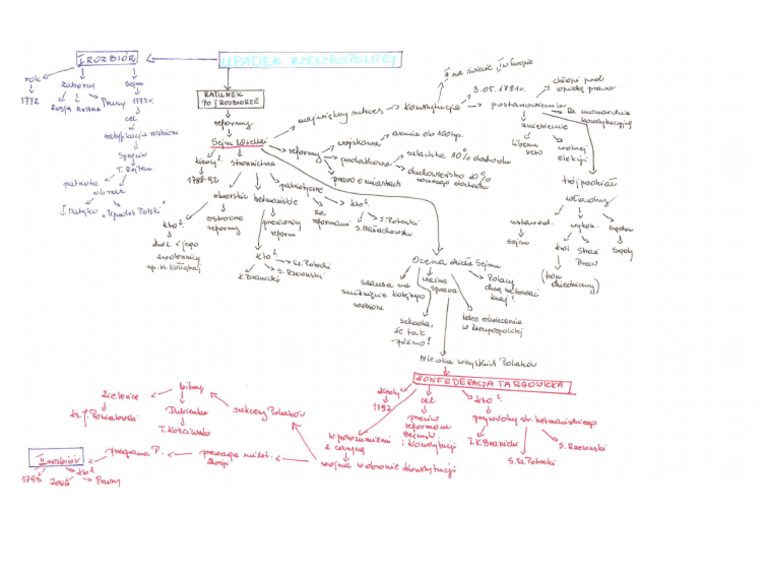 UPADEK RZECZPOSPOLITEJ
I ROZBIÓR
rok
1772
zaborcy
Rosja Austria
Prusy
sejm
1773r.
cel
ratyfikacja rozbioru
sprzeciw
T. Rejtan
patriota
obraz
J. Matejko
"Upadek Polski"
RATUNEK
PO I ROZBIORZE
reformy
Sejm Wielki
kiedy?
1788-92
stronnictwa
dworskie
ostrożne
reformy
kto?
król i jego
zwolennicy
np. H. Kołłątaj
hetmańskie
przeciwnicy
reform
kto?
K. Branicki
S. Rzewuski
Sz. Potocki
patriotyczne
za
reformami
kto?
I. Potocki
S. Małachowski
największy sukces
Konstytucja
II na świecie
I w Europie
3.05.1791r.
postanowienia
chłopi pod
opieką prawa
monarchia
konstytucyjna
zniesienie
liberum
veto
wolnej
elekcji
trójpodział
władzy
ustawod.
sejm
wykon.
król
Straż
Praw
sądow.
Sądy
(tron
dziedziczny)
reformy
wojskowa
armia do 100tys.
podatkowa
szlachta 10% dochodu
duchowieństwo 20%
swojego dochodu
prawo o miastach
Ocena dzieła Sejmu
szansa na
uniknięcie kolejnego
rozbioru
ważna
sprawa
Polacy
chcą ratować
kraj!
szkoda,
że tak
późno!
w Rzeczpospolitej
Niewielu wszystkich Polaków
KONFEDERACJA TARGOWICKA
kiedy
1792
cel
przeciw
reformom
sejmu
i Konstytucji
kto?
przywódcy str. hetmańskiego
K. Branicki
S. Sz. Potocki
S. Rzewuski
w porozumieniu
z carycą
wojna w obronie Konstytucji
sukcesy Polaków
bitwy
Zieleńce
ks. J. Poniatowski
Dubienka
T. Kościuszko
przewaga milit.
Rosji
przegrana P.
II rozbiór
1793
kto?
Rosja
Prusy